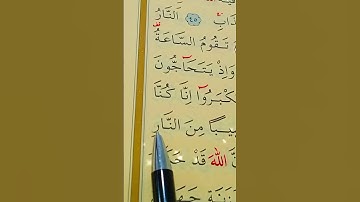 ذَابِ ﴿٤٥﴾ اَلنَّارُ
تَقُومُ السَّاعَةُ
وَاِذْ يَتَحَٓاجُّونَ
كْبَرُٓوا اِنَّا كُنَّا
يباً مِنَ النَّارِ
اللّٰهَ قَدْ حَ